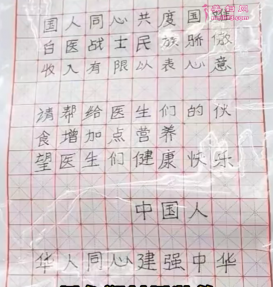 国人同心共度国
白医战士民族骄傲
收入有限以表心意
请帮给医生们的伙
食增加点营养
望医生们健康快乐
中国人
华人同心建强中华